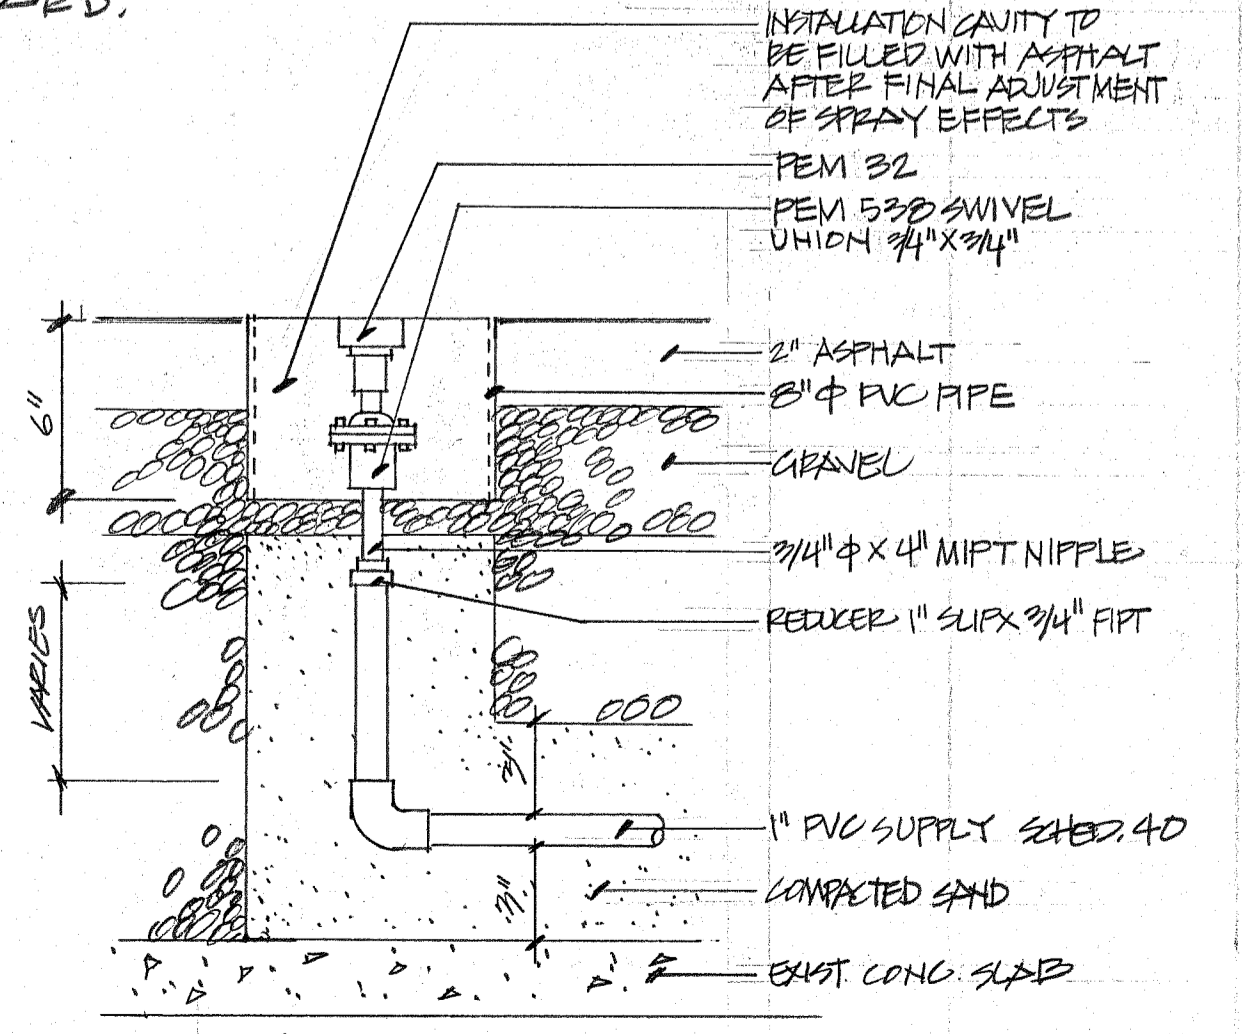 INSTALLATION CAVITY TO
BE FILLED WITH ASPHALT
AFTER FINAL ADJUSTMENT
OF SPRAY EFFECTS
PEM 32
PEM 538 SWIVEL
UNION 3/4" X 3/4"
6"
2" ASPHALT
8" Φ PVC PIPE
GRAVEL
3/4" Φ X 4" MIPT NIPPLE
REDUCER 1" SLIP X 3/4" FIPT
VARIES
3"
1" PVC SUPPLY SCHED. 40
3"
COMPACTED SAND
EXIST. CONC. SLAB